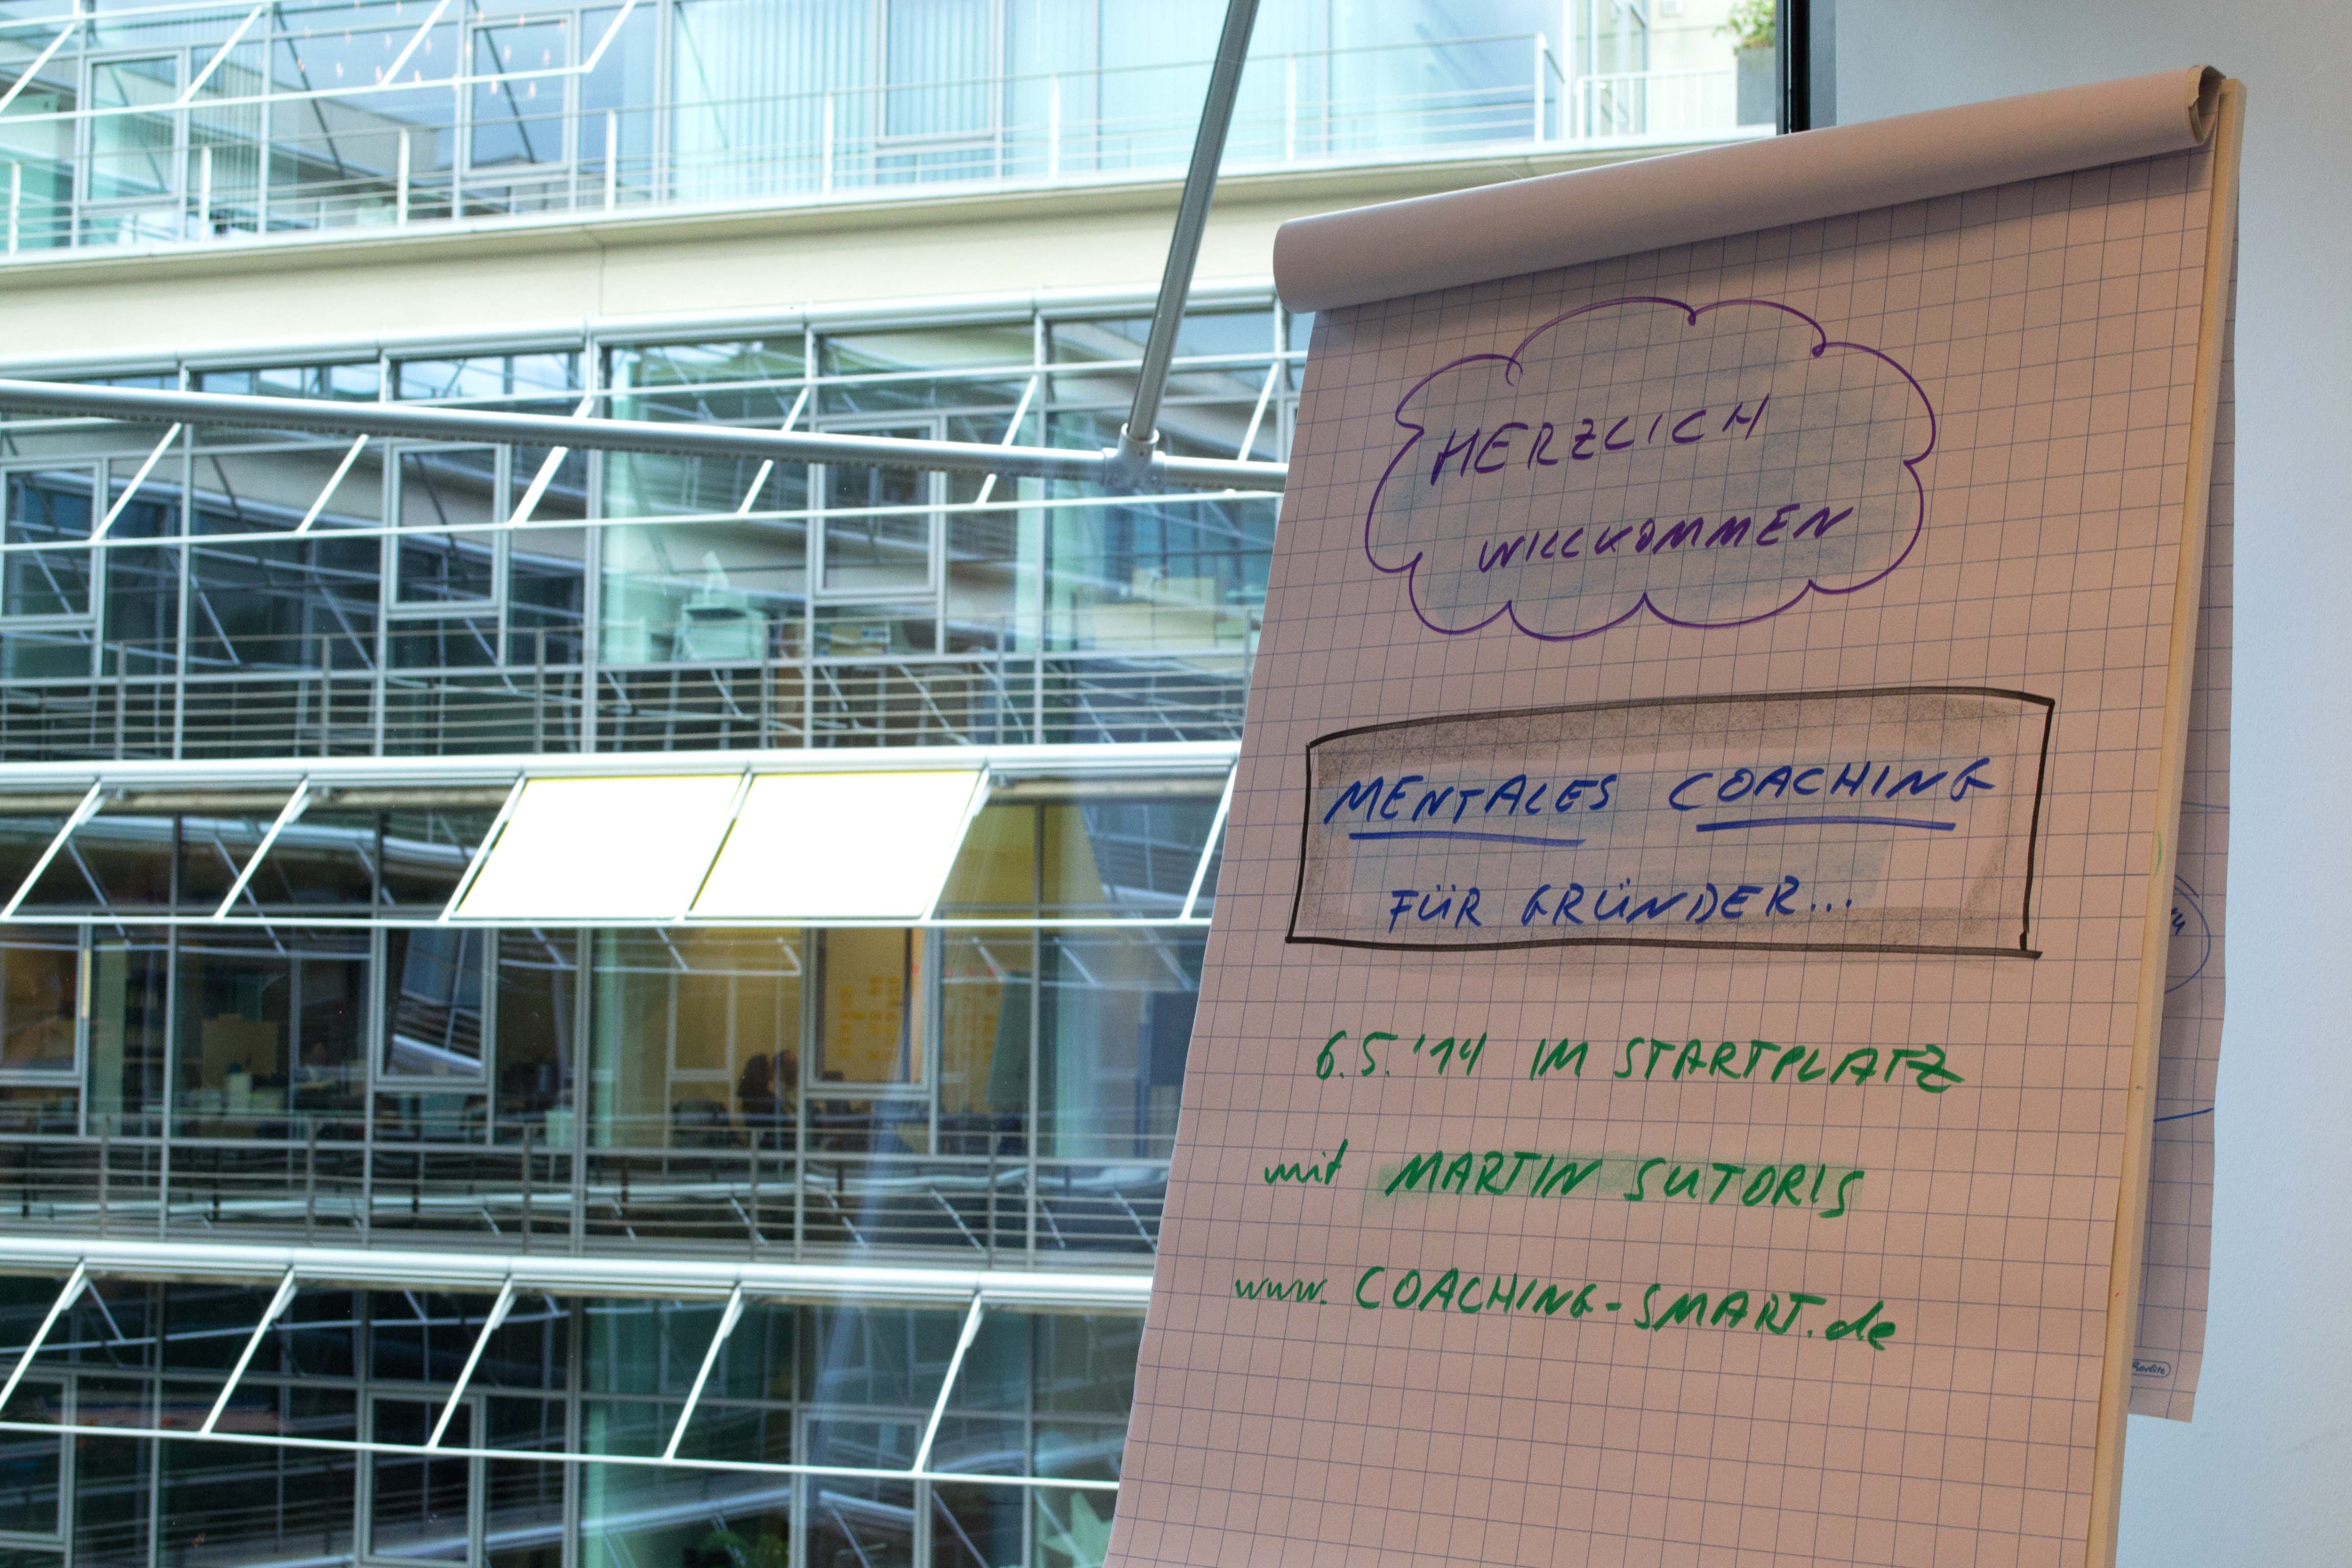 HERZLICH
WILLKOMMEN
MENTALES COACHING
FÜR GRÜNDER...
6.5.'14 IM STARTPLATZ
mit MARTIN SUTORIS
www.COACHING-SMART.de